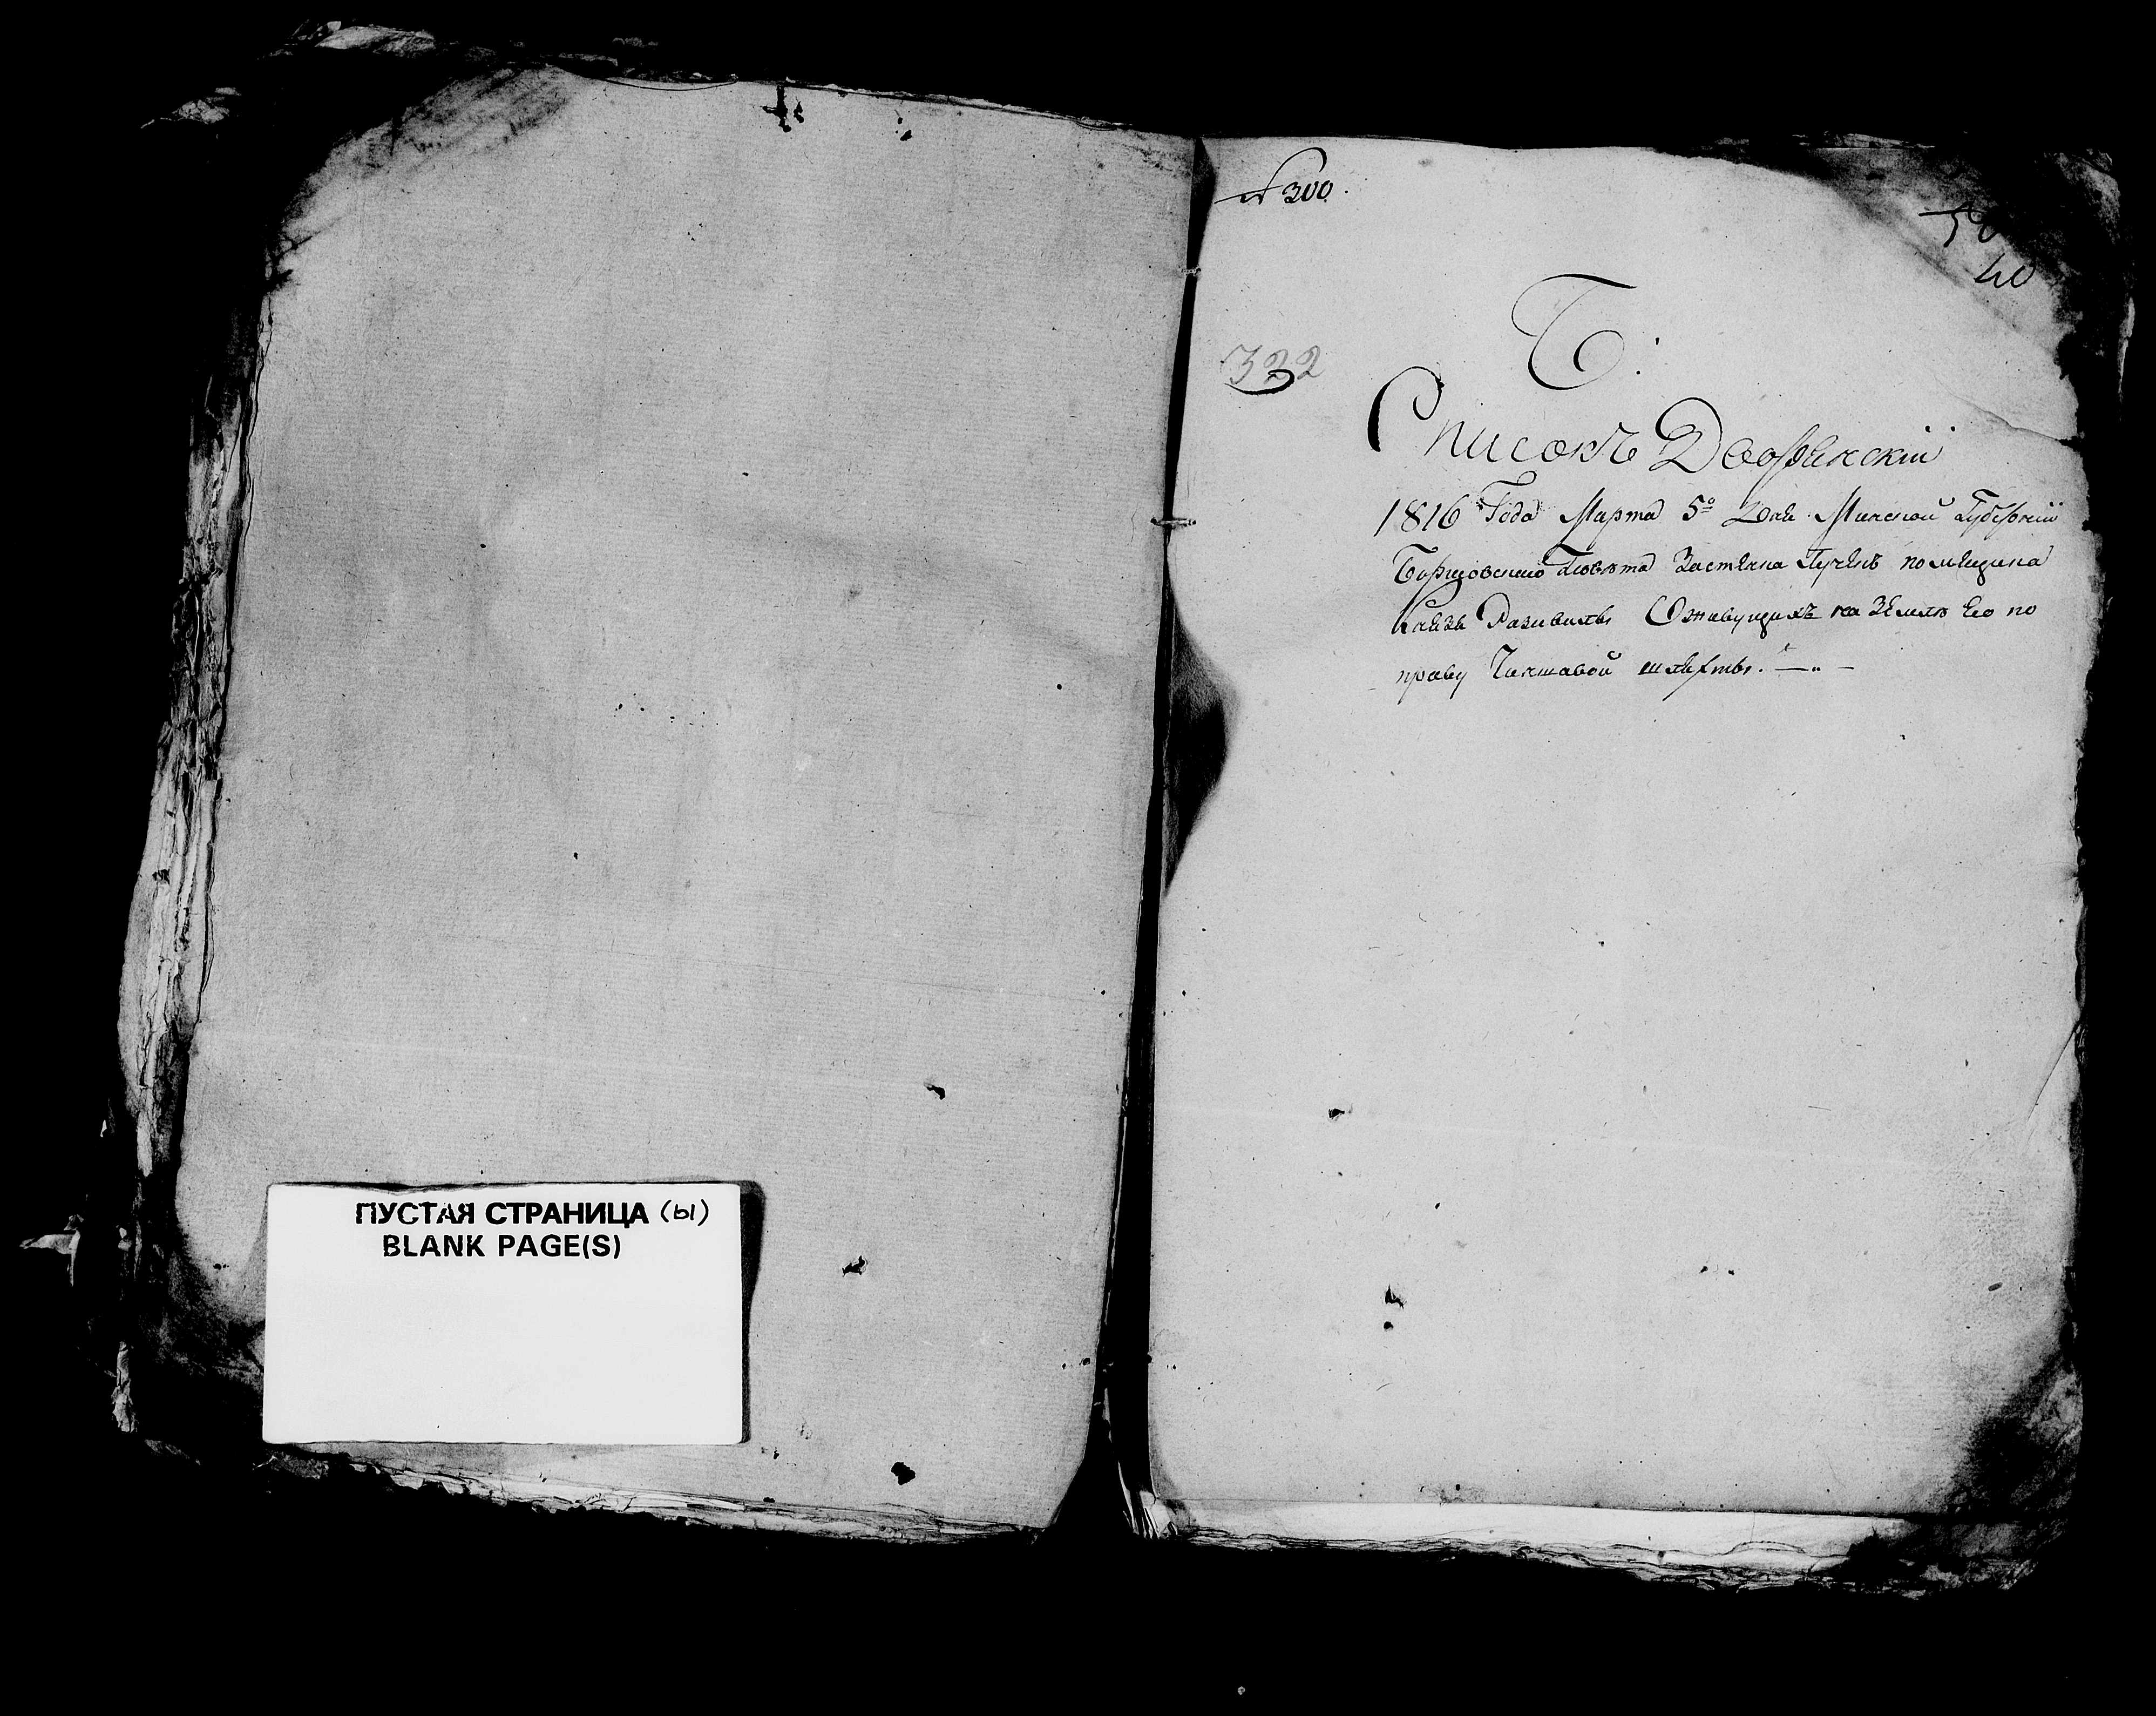 ПУСТАЯ СТРАНИЦА (ы)
BLANK PAGE(S)
№ 300.
40
332
Б.
Списокъ Дворянский
1816 Года Марта 5º Дня Минской Губерніи
Борисовского Повѣта Застенка помещика
Князя Радзивилы Оживущихъ на Земле Его по
праву Чиншавой шляхты.